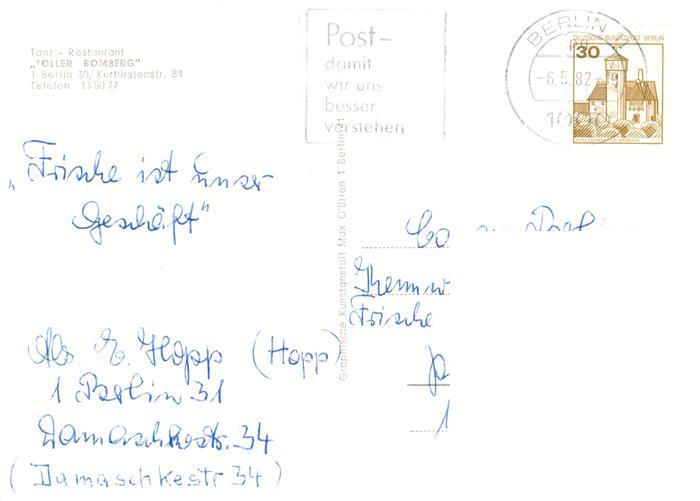 Tanz - Restaurant
„TOLLER BOMBERG"
1 Berlin 30, Kurfürstenstr. 84
Telefon 13 50 77
Post-
damit
wir uns
besser
verstehen
BERLIN
-6.5.82-9
1000
DEUTSCHE BUNDESPOST BERLIN
30
Graphische Kunstanstalt Max O'Brien 1 Berlin
„Frische ist unser
Geschäft"
Frische
Abs. E. Hopp (Hopp)
1 Berlin 31
Damaschkestr. 34
(Damaschkestr 34)